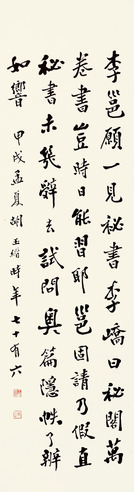 李邕願一見秘書李嶠曰秘閣萬
卷書豈時日能習耶邕固請乃假直
秘書未幾辭去試問奧篇隱帙了辨
如響 甲戌孟夏胡玉縉時年七十有六